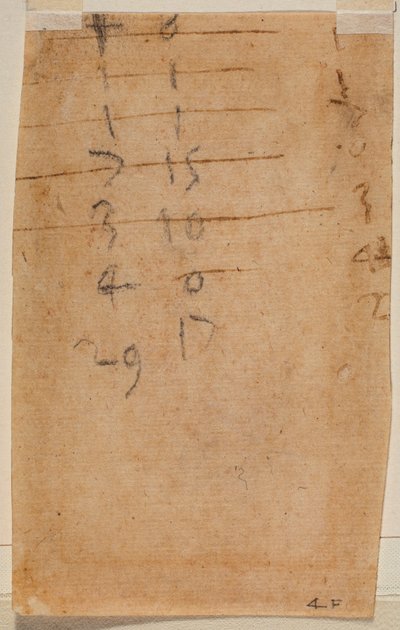 4 6 1
1 1 1
1 1 2
7 15 0
3 10 3
4 0 4
29 17 2
4F